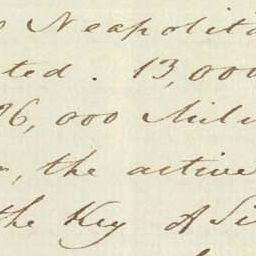 Neapolita
ted. 13,000
96,000 Mili
, the active
the Key of Si